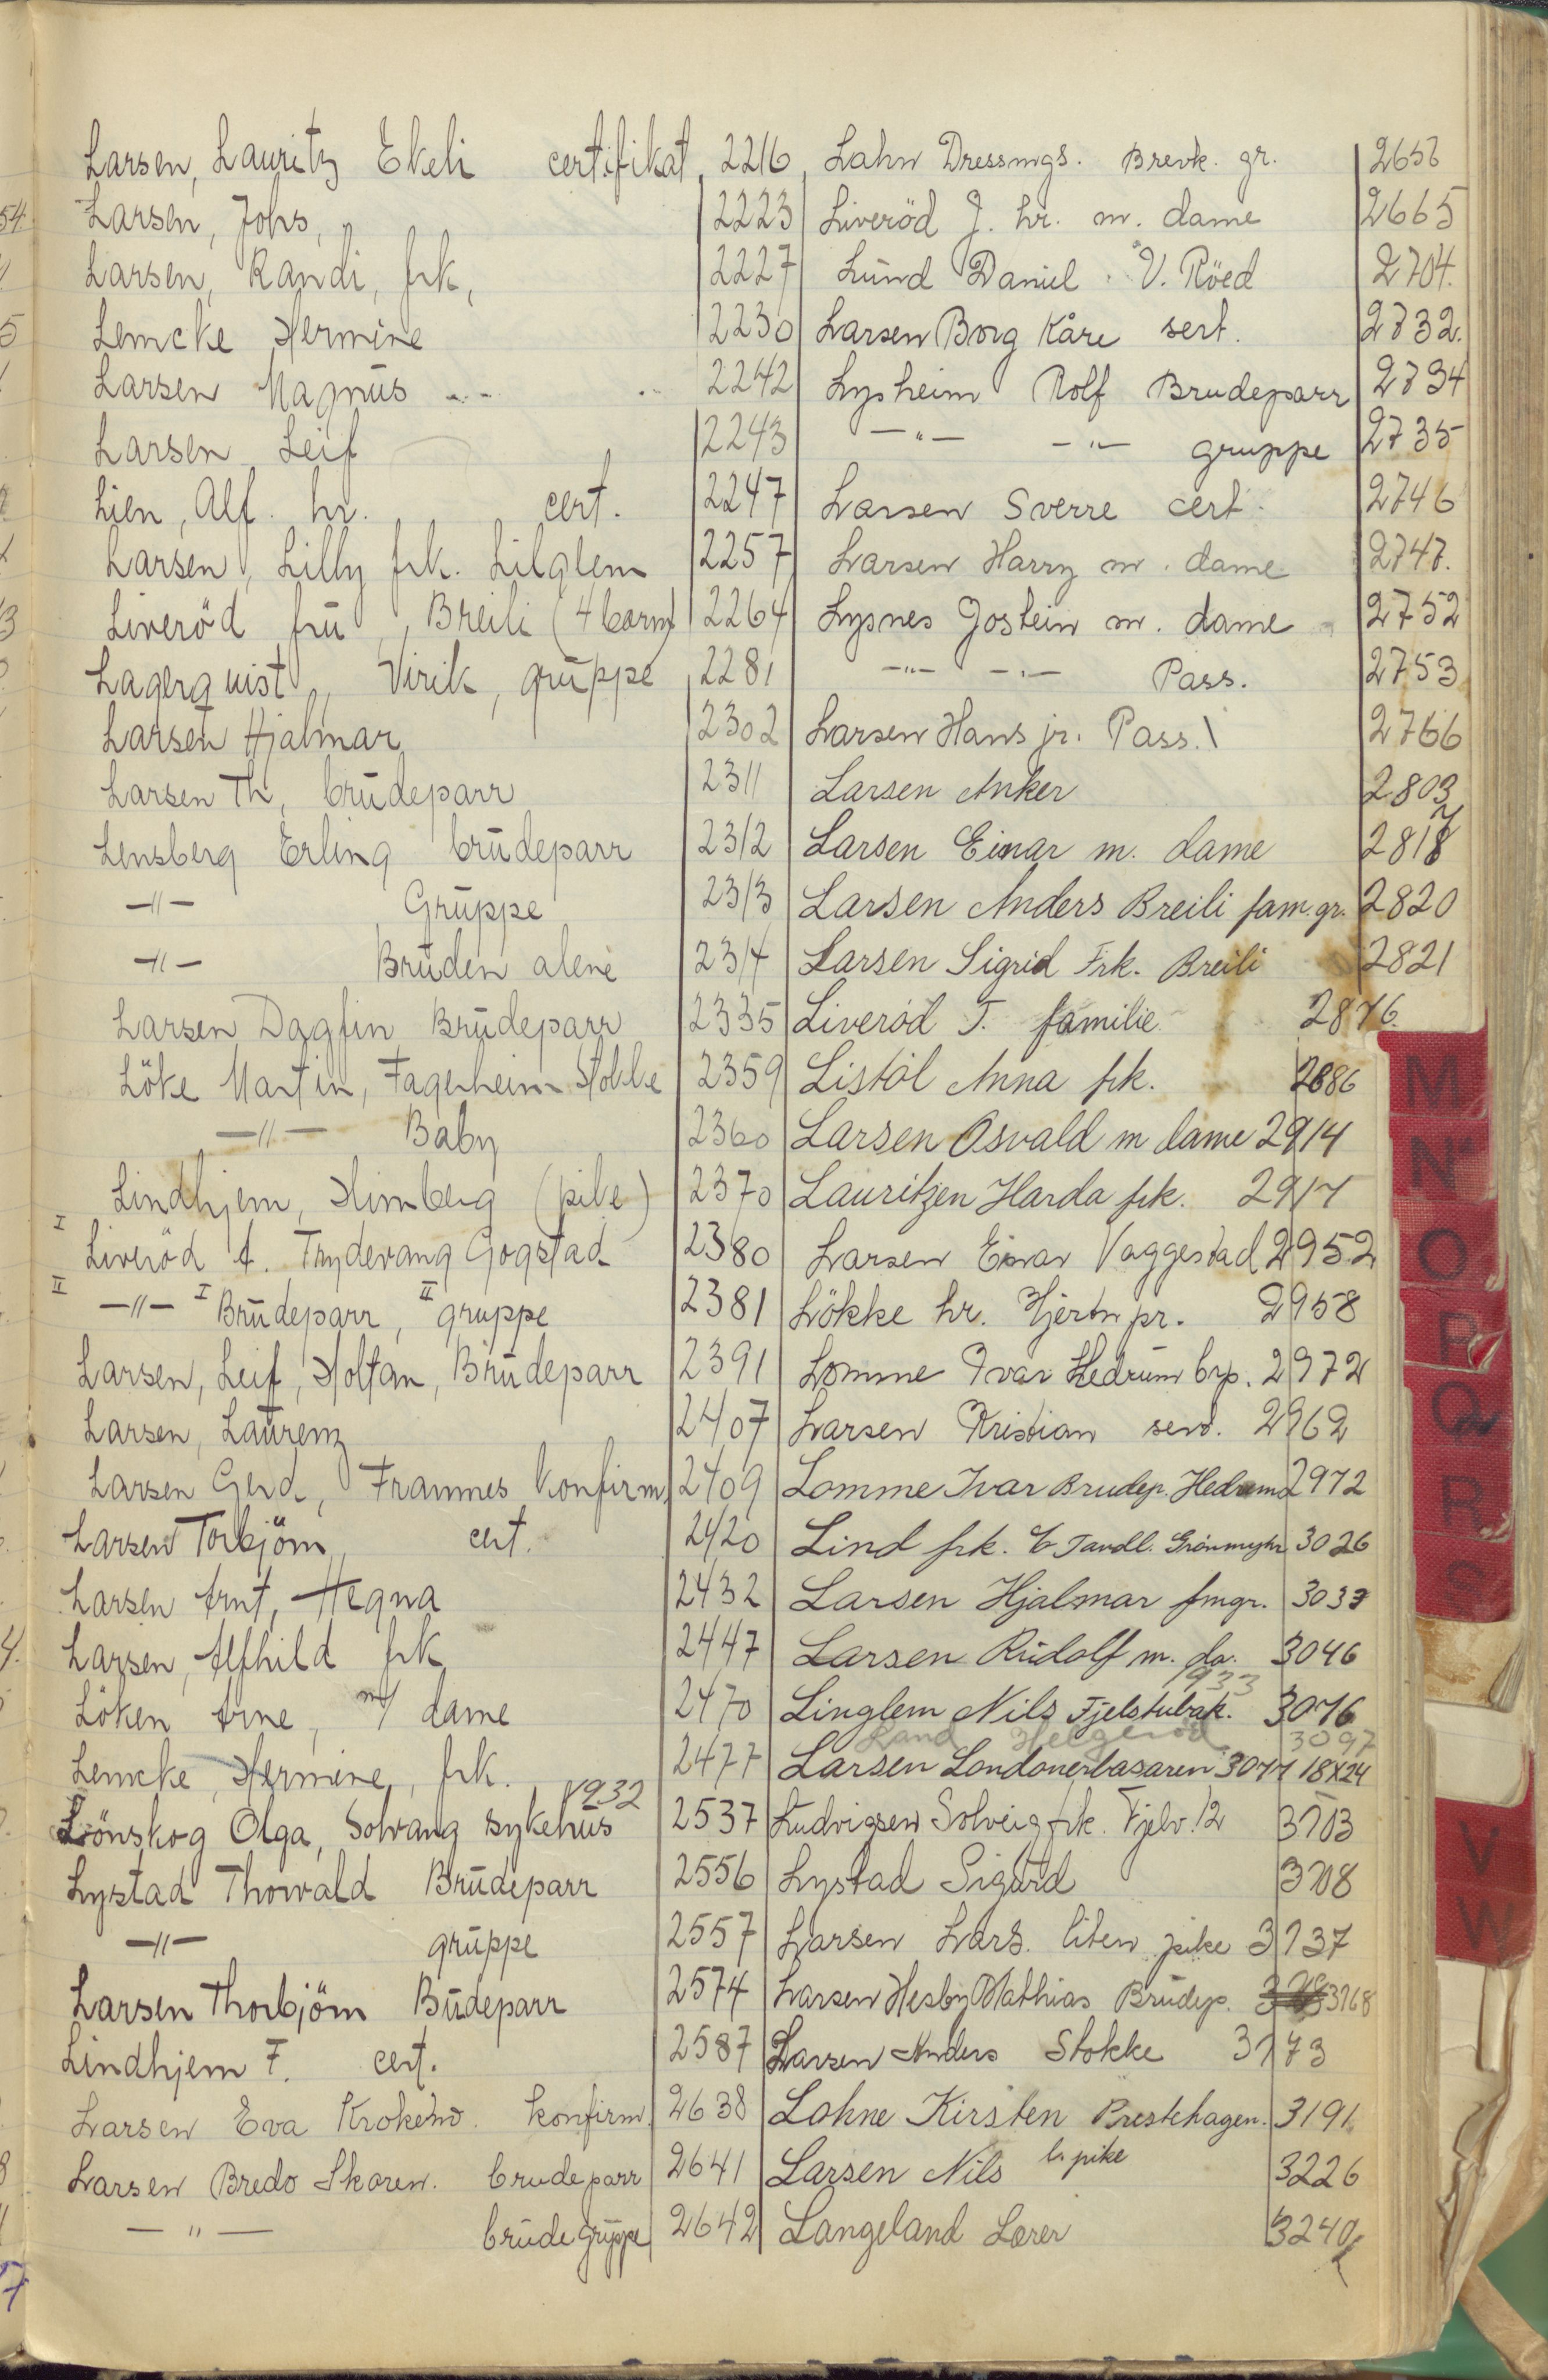 Larsen, Lauritz Ekeli certifikat 2216
Larsen, Johs, 2223
Larsen, Randi, frk, 2227
Lemcke Hermine 2230
Larsen Magnus 2242
Larsen Leif 2243
Lien, Alf. hr. cert. 2247
Larsen, Lilly frk. Lilglem 2257
Liveröd frü, Breili (4 barn) 2264
Lagerquist, Virik, grüppe 2281
Larsen Hjalmar 2302
Larsen Th, brüdeparr 2311
Lensberg Erling brüdeparr 2312
-"- Grüppe 2313
-"- Brüden alene 2314
Larsen Dagfin Brüdeparr 2335
Löke Martin, Fagerheim Stokke 2359
-"- Baby 2360
Lindhjem, Himberg (pike) 2370
I Liveröd A. Thydevang Gogstad 2380
II -"- I Brüdeparr, II gruppe 2381
Larsen, Leif, Holtan, Brüdeparr 2391
Larsen, Laurenz 2407
Larsen Gerd, Framnes Konfirm. 2409
Larsen Torbjörn, cert. 2420
Larsen Arnt, Hegna 2432
Larsen, Alfhild frk 2447
Löken Arne, m/ dame 2470
Lemcke, Hermine, frk. 2477
1932
Lönskog Olga, Solvang sykehüs 2537
Lystad Thorvald Brüdeparr 2556
-"- grüppe 2557
Larsen Thorbjörn Büdeparr 2574
Lindhjem F. cert. 2587
Larsen Eva Krokemo. konfirm. 2638
Larsen Bredo Skoren. brudeparr 2641
- " - brüdegrüppe 2642
Lahn Dressings. Brevk. gr. 2656
Liveröd J. hr. m. dame 2665
Lund Daniel V. Röed 2704.
Larsen Borg Kåre sert. 2732.
Lysheim Rolf Brudeparr 2734
-"- -"- gruppe 2735
Larsen Sverre cert. 2746
Larsen Harry m. dame 2747.
Lysnes Jostein m. dame 2752
-"- -"- Pass. 2753
Larsen Hans jr. Pass. 2766
Larsen Anker 2803
Larsen Einar m. dame 2817
Larsen Anders Breili fam. gr. 2820
Larsen Sigrid Frk. Breili 2821
Liveröd T. familie 2876.
Listöl Anna frk. 2886
Larsen Osvald m dame 2914
Lauritzen Harda frk. 2917
Larsen Einar Vaggestad 2952
Lökke hr. Hjertn pr. 2958
Lomme Ivar Hedrum brp. 2972
Larsen Kristian send. 2962
Lomme Ivar Brudep. Hedrum 2972
Lind frk. Tandl. Grönmyhr 3026
Larsen Hjalmar fmgr. 3033
Larsen Rüdolf m. da. 3046
1933
Linglem Nils Fjelstubak. 3076
Rand Helgeröd 3097
Larsen Londonerbasaren 3077 18X24
Ludvigsen Solveig frk. Fjelv. 12 3103
Lystad Sigurd 3108
Larsen Lars. liten pike 3137
Larsen Hesby Mathias Brüdep. 3168
Larsen Anders Stokke 3173
Lohne Kirsten Prestehagen. 3191
Larsen Nils l. pike 3226
Langeland Lærer 3240
M
N
O
P
Q
R
S
V
W